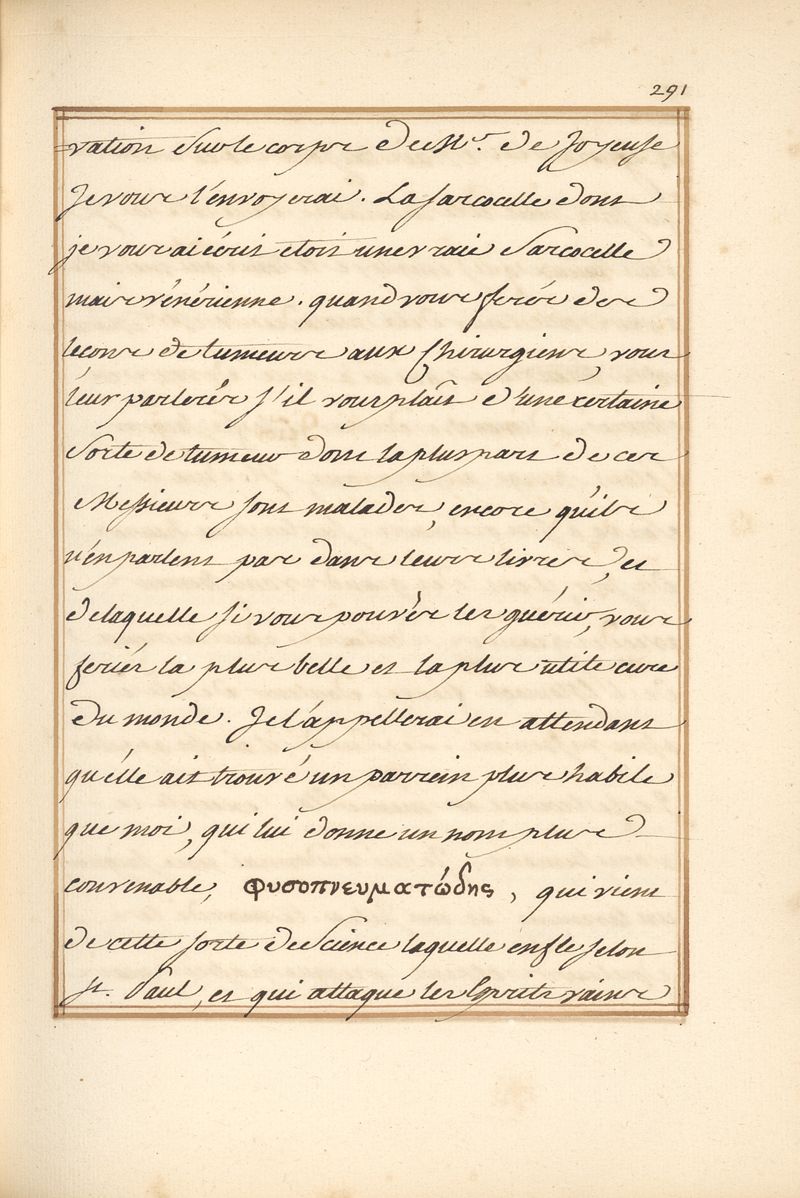 291
=vation sur le corps de Mr. de Joyeuse
Je vous l'envoyerai. La sarcocelle dont
je vous ai écris etoit une vraie Sarcocelle
mais vénérienne. quand vous ferés des
leçons de tumeurs aux Chirurgiens, vous
leur parlerés s'il vous plaît d'une certaine
sorte de tumeur dont la pluspart de ces
Messieurs sont malades, encore qu'ils
n'en parlent pas dans leurs livres, et
de laquelle si vous pouvés les guérir, vous
feriés la plus belle et la plus utile cure
du monde. Je l'appellerai en attendant
qu'elle ait trouvé un parrein plus habile
que moi, qui lui donne un nom plus
convenable, φυσοπνευματώδης, qui vient
de cette sorte de Science laquelle enfle selon
St. Paul, et qui attaque les Esprits vains